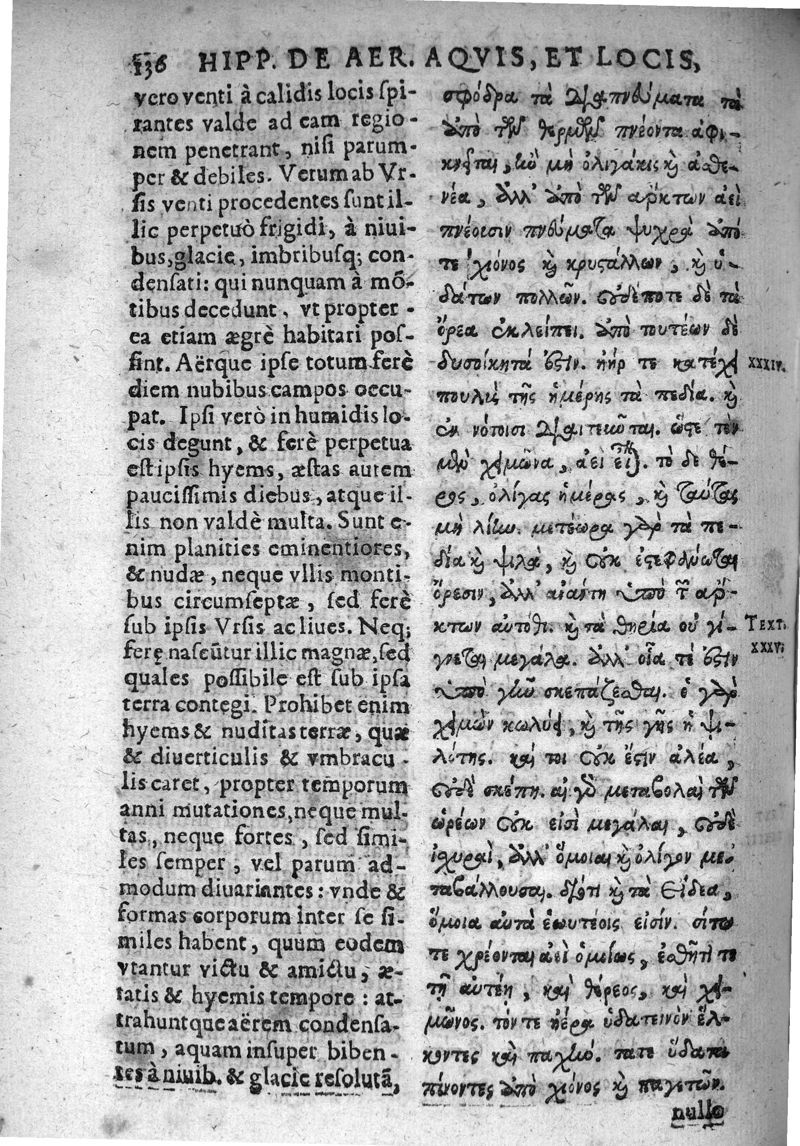 136 HIPP. DE AER. AQVIS, ET LOCIS,
vero venti à calidis locis ſpi-
rantes valde ad eam regio-
nem penetrant, niſi parum-
per & debiles. Verum ab Vr-
ſis venti procedentes ſunt il-
lic perpetuò frigidi, à niui-
bus, glacie, imbribuſq; con-
denſati: qui nunquam à mō-
tibus decedunt, vt propter-
ea etiam ægrè habitari poſ-
ſint. Aërque ipſe totum ferè
diem nubibus campos occu-
pat. Ipſi verò in humidis lo-
cis degunt, & ferè perpetua
eſt ipſis hyems, æſtas autem
pauciſſimis diebus, atque il-
lis non valdè multa. Sunt e-
nim planities eminentiores,
& nudæ, neque vllis monti-
bus circumſeptæ, ſed ferè
ſub ipſis Vrſis accliues. Neq;
feræ naſcūtur illic magnæ, ſed
quales poſſibile eſt ſub ipſa
terra contegi. Prohibet enim
hyems & nuditas terræ, quæ
& diuerticulis & vmbracu-
lis caret, propter temporum
anni mutationes, neque mul-
tas, neque fortes, ſed ſimi-
les ſemper, vel parum ad-
modum diuariantes: vnde &
formas corporum inter ſe ſi-
miles habent, quum eodem
vtantur victu & amictu, æ-
ſtatis & hyemis tempore: at-
trahuntque aërem condenſa-
tum, aquam inſuper biben-
tes à niuib. & glacie reſolutā,
σφόδρα τὰ διαπνεύματα τὰ
ἀπὸ τῶν θερμῶν πνέοντα ἀφι-
κνεῖται, ἢν μὴ ὀλιγάκις καὶ ἀσθε-
νέα, ἀλλ' ἀπὸ τῶν ἄρκτων ἀεὶ
πνέοισιν πνεύματα ψυχρὰ ἀπό
τε χιόνος καὶ κρυστάλλων, καὶ ὑ-
δάτων πολλῶν. οὐδέποτε δὲ τὰ
ὄρεα ἐκλείπει. ἀπὸ τουτέων δὲ
δυσοίκητά ἐστιν. ἠήρ τε κατέχει
XXXIV.
πουλὺς τῆς ἡμέρης τὰ πεδία. καὶ
ἐν νότοισι διαιτεῶνται. ὥστε τὸν
μὲν χειμῶνα, ἀεὶ εἶναι. τὸ δὲ θέ-
ρος, ὀλίγας ἡμέρας, καὶ ταύτας
μὴ λίην. μετέωρα γὰρ τὰ πε-
δία καὶ ψιλὰ, καὶ οὐκ ἐστεφάνωται
ὄρεσιν, ἀλλ' ἀνάντη ὑπὸ τῶν ἄρ-
κτων αὐτόθι. καὶ τὰ θηρία οὐ γί-
TEXT.
XXXV.
νεται μεγάλα. ἀλλ' οἷά τέ ἐστιν
ὑπὸ γῆν σκεπάζεσθαι. ὁ γὰρ
χειμὼν κωλύει, καὶ τῆς γῆς ἡ ψι-
λότης. καί τοι οὐκ ἔστιν ἀλέα,
οὐδὲ σκέπη. αἱ γὰρ μεταβολαὶ τῶν
ὡρέων οὐκ εἰσὶ μεγάλαι, οὐδὲ
ἰσχυραὶ, ἀλλ' ὅμοιαι καὶ ὀλίγον με-
ταβάλλουσαι. διότι καὶ τὰ εἴδεα,
ὅμοια αὐτὰ ἑωυτέοις εἰσίν. σίτῳ
τε χρέονται ἀεὶ ὁμοίως, ἐσθῆτί τε
τῇ αὐτέῃ, καὶ θέρεος, καὶ χει-
μῶνος. τόν τε ἠέρα ὑδατεινὸν ἕλ-
κοντες καὶ παχὺν. τά τε ὕδατα
πίνοντες ἀπὸ χιόνος καὶ παγετῶν.
nullo